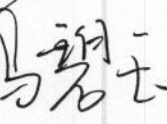 马碧云